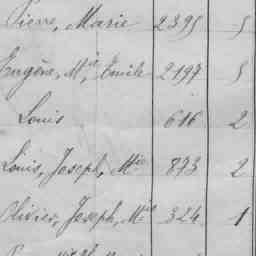 Pierre, Marie 2395 5
Eugène, Mie, Emile 2197 5
Louis 616 2
Louis, Joseph, Mie 873 2
Olivier, Joseph, Mie 324 1